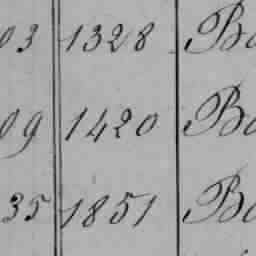 03 1328 Bo
09 1420 Bo
35 1851 Bo